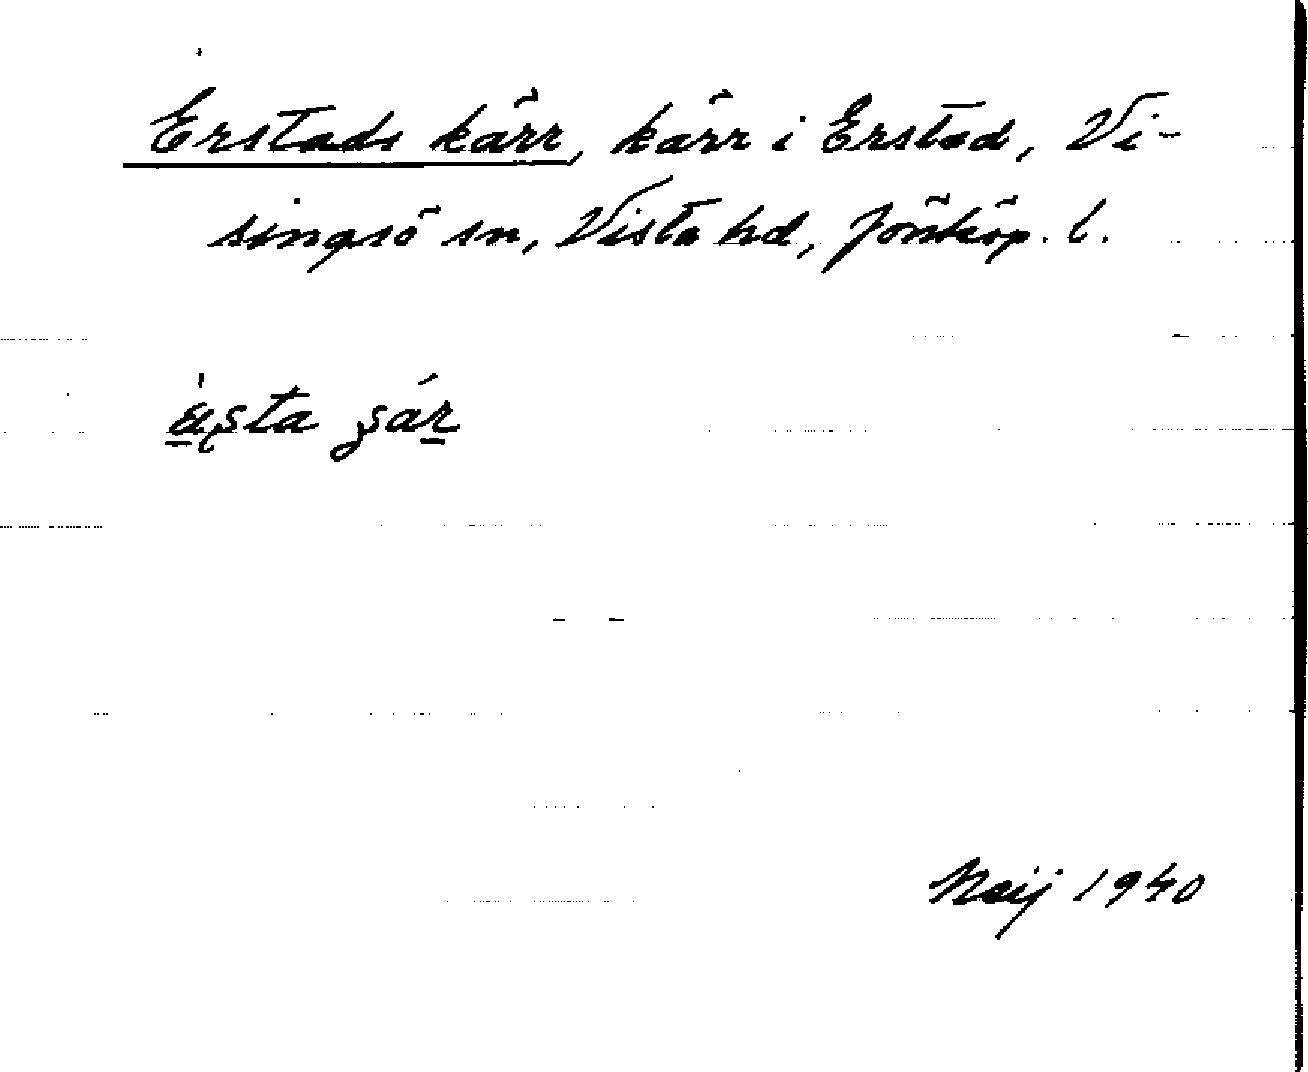 Erstads kärr, kärr i Erstad, Vi-
singsö sn, Vista hd, Jönköp. l.
1940